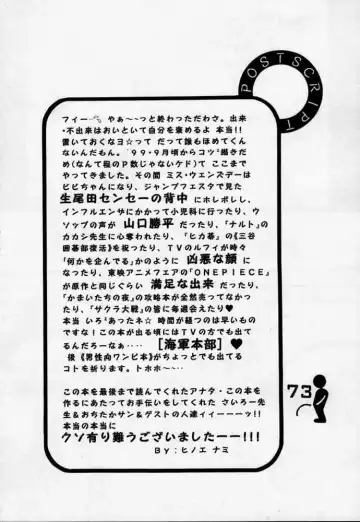 POSTSCRIPT
フィー やぁ～～っと終わっただわさ。出来
・不出来はおいといて自分を褒めるよ 本当!!
置いておくなヨ☆って だって誰もほめてくん
ないんだもん。'99・9月頃からコツコツ描きだ
め(なんて程のP数じゃないケド)て ここまで
やってきました。その間 ミス・ウェンズデーは
ビビちゃんになり、ジャンプフェスタで見た
生尾田センセーの背中 にホレボレし、
インフルエンサにかかって小児科に行ったり、ウ
ソップの声が 山口勝平 だったり、「ナルト」の
カカシ先生に心奪われたり、「ヒカ碁」の《三谷
囲碁部復活》を祝ったり、TVのルフィが時々
「何かを企んでる」かのように 凶悪な顔 に
なったり、東映アニメフェアの「ONEPIECE」
が原作と同じぐらい 満足な出来 だったり、
「かまいたちの夜」の攻略本が全然売ってなかっ
たり、「サクラ大戦」の皆に毎週会えたり♥
本当 いろ²あったネ☆ 時間が経つのは早いもの
ですな!この本が出る頃にはTVの方でも出て
るんだろーなぁ‥ [海軍本部] ♥
後《男性向ワンピ本》がちょっとでも出てる
コトを祈ります。トホホ～～
この本を最後まで読んでくれたアナタ・この本を
作るにあたってお手伝いをしてくれた さいろー先
生&おぢたかサン&ゲストの人達ィィーーーッ!!
本当の本当に
クソ有り難うございましたーー!!!
By:ヒノエ ナミ
73